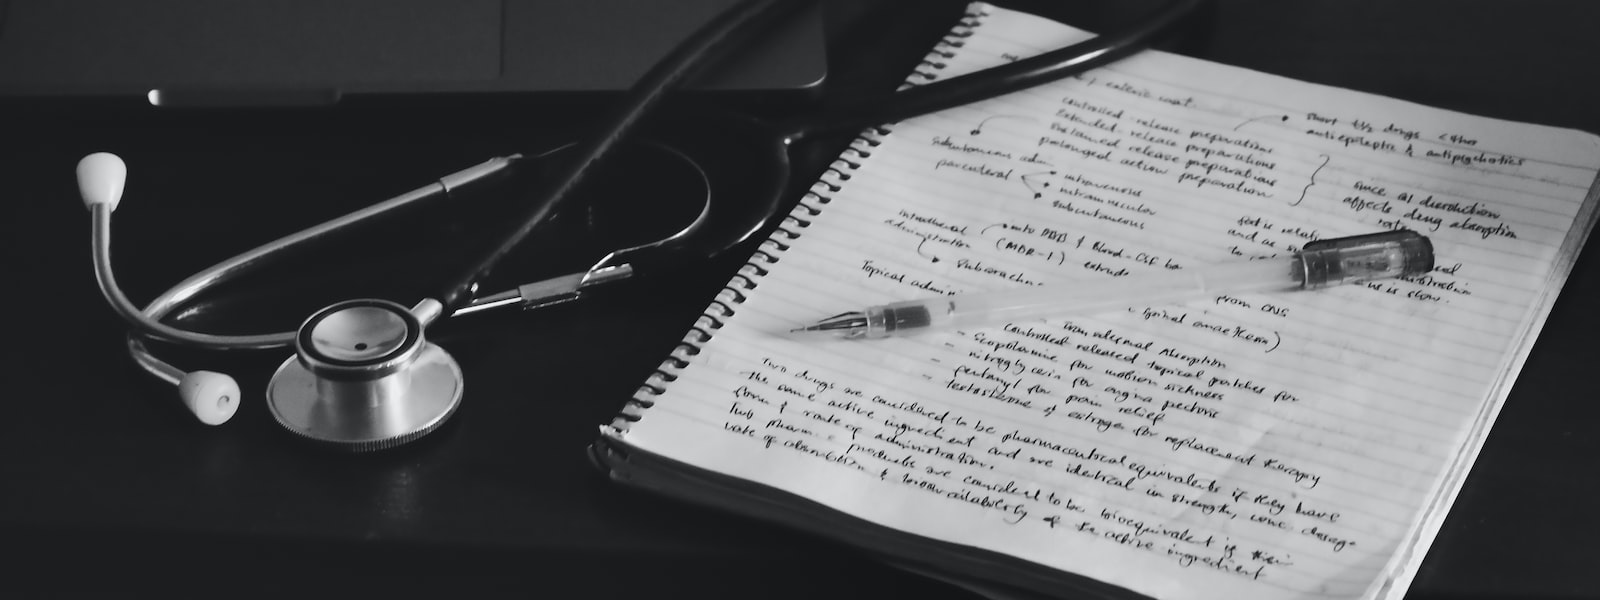 enteric coat
controlled release preparations
Extended release preparations
Sustained release preparations
prolonged action preparation
short t1/2 drugs
antiepileptic & antipsychotics
since GI dissolution
affects drug absorption
rate
Subcutaneous adm
parenteral
intravenous
intramuscular
subcutaneous
intrathecal
administration
into BBB & Blood-CSF ba
(MDR-1) extrude
from CNS
subarachn
(spinal anaesthesia)
Topical admin
is slow.
Transdermal Absorption
Controlled released topical patches for
- Scopolamine for motion sickness
- nitroglycerin for angina pectoris
- fentanyl for pain relief
- testosterone & estrogen for replacement therapy
Two drugs are considered to be pharmaceutical equivalents if they have
the same active ingredient and are identical in strength, conc, dosage
form & route of administration.
Two pharm. products are considered to be bioequivalent if their
rate of absorption & bioavailability of the active ingredient